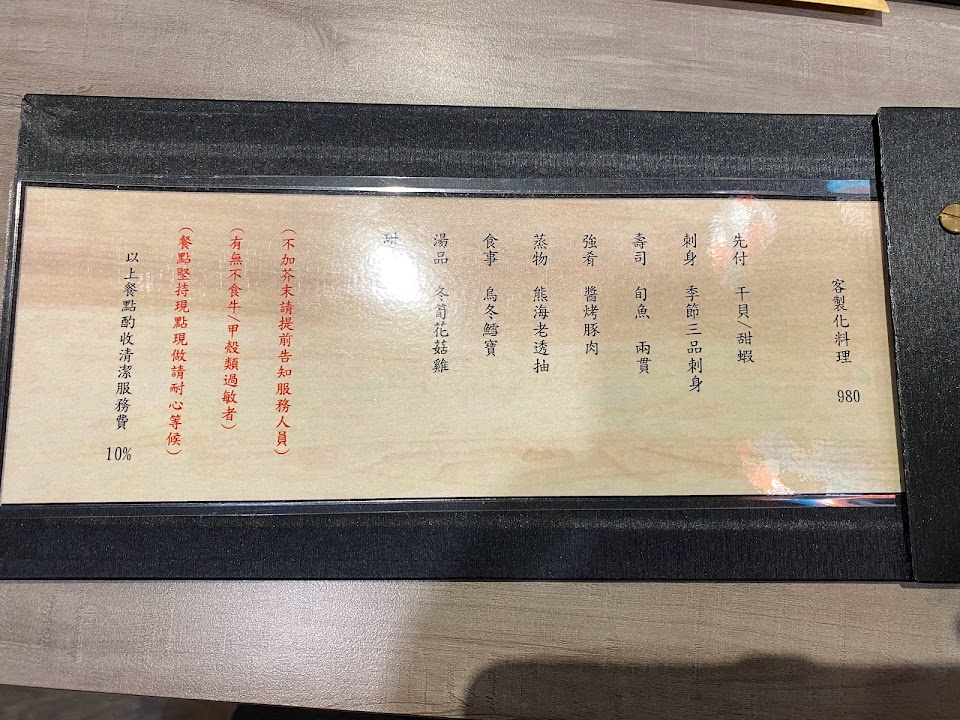 客製化料理 980
先付 干貝/甜蝦
刺身 季節三品刺身
壽司 旬魚 兩貫
強肴 醬烤豚肉
蒸物 熊海老透抽
食事 烏冬鱈寶
湯品 冬筍花菇雞
甜
(不加芥末請提前告知服務人員)
(有無不食牛/甲殼類過敏者)
(餐點堅持現點現做請耐心等候)
以上餐點酌收清潔服務費 10%